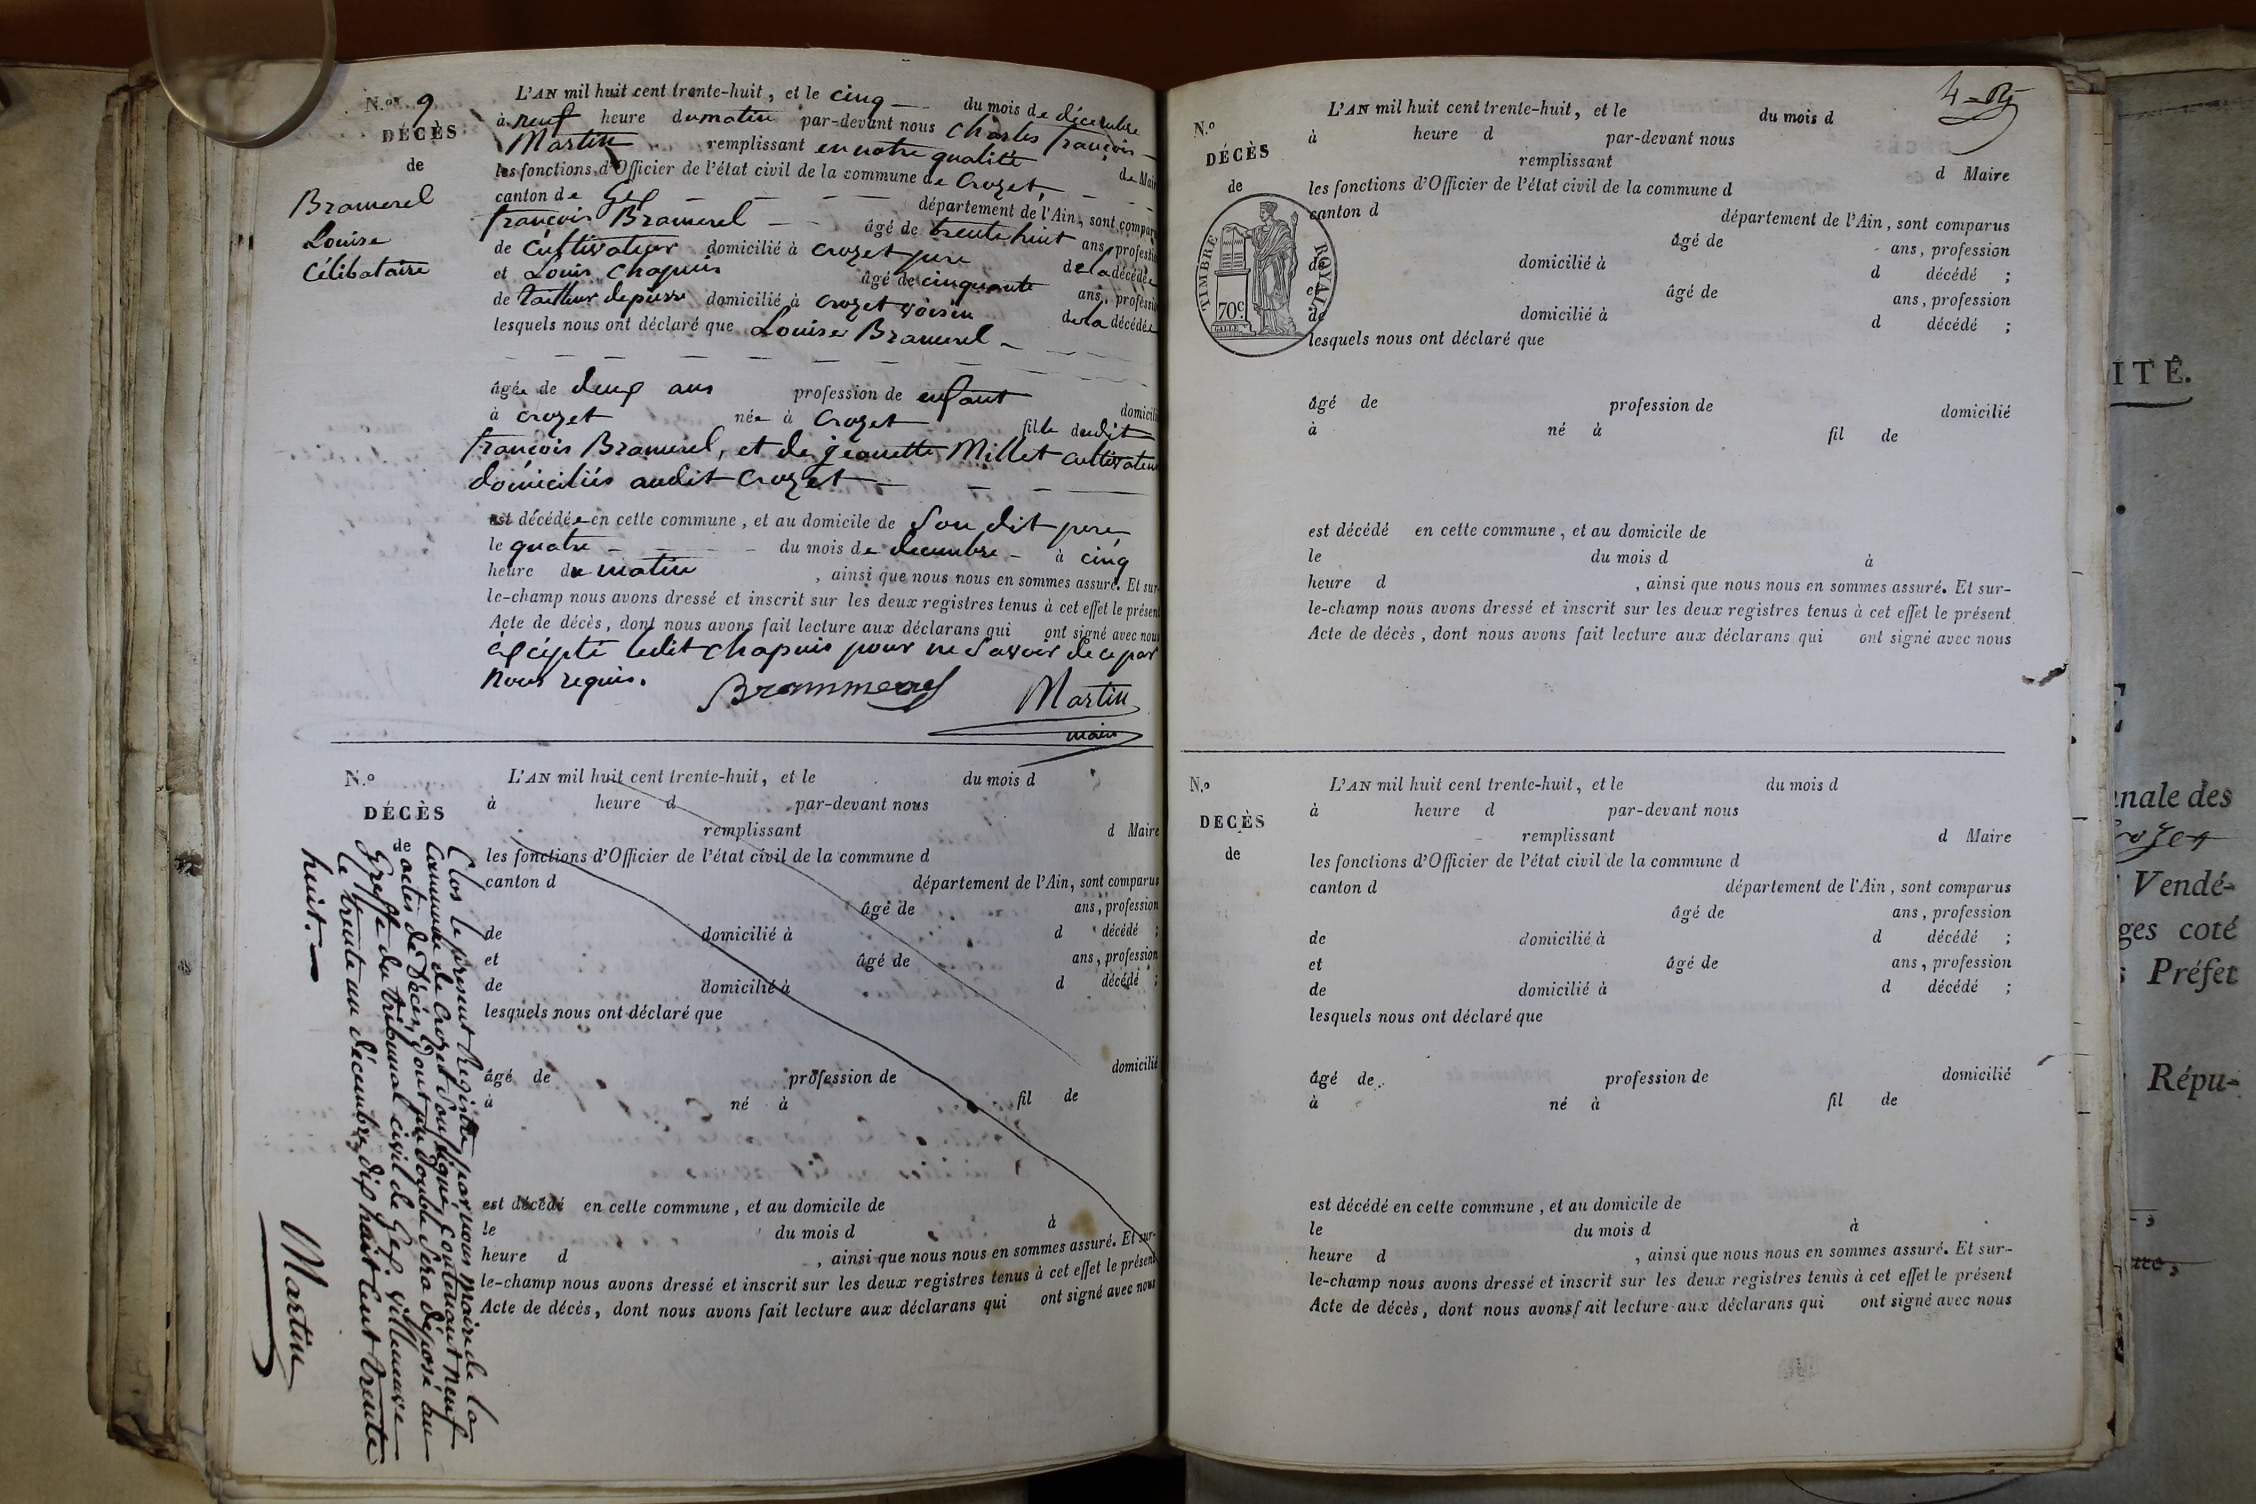 N.o 9
DÉCÈS
de
Bramerel
Louise
Célibataire
L'AN mil huit cent trente-huit, et le cinq du mois de décembre
à neuf heure du matin par-devant nous Charles françois
Martin remplissant en notre qualité de Maire
les fonctions d'Officier de l'état civil de la commune de Crozet,
canton de Gex département de l'Ain, sont comparus
françois Bramerel âgé de trente huit ans, profession
de Cultivateur domicilié à Crozet pere de la décédée
et Louis Chapuis âgé de cinquante ans, profession
de tailleur de pierre domicilié à Crozet voisin de la décédée
lesquels nous ont déclaré que Louise Bramerel
âgée de deux ans profession de enfant domicilié
à Crozet née à Crozet fille dudit
françois Bramerel, et de jeanette Millet cultivateurs
domiciliés audit Crozet
est décédée en cette commune, et au domicile de Son dit pere
le quatre du mois de decembre à cinq
heure du matin, ainsi que nous nous en sommes assuré. Et sur-
le-champ nous avons dressé et inscrit sur les deux registres tenus à cet effet le présent
Acte de décès, dont nous avons fait lecture aux déclarans qui ont signé avec nous
excépté ledit Chapuis pour ne Savoir de ce par
Nous requis.
Brammerel Martin
maire
N.o
DÉCÈS
de
L'AN mil huit cent trente-huit, et le du mois d
à heure d par-devant nous
remplissant d Maire
les fonctions d'Officier de l'état civil de la commune d
canton d département de l'Ain, sont comparus
âgé de ans, profession
de domicilié à d décédé ;
et âgé de ans, profession
de domicilié à d décédé ;
lesquels nous ont déclaré que
âgé de profession de domicilié
à né à fil de
est décédé en cette commune, et au domicile de
le du mois d à
heure d , ainsi que nous nous en sommes assuré. Et sur-
le-champ nous avons dressé et inscrit sur les deux registres tenus à cet effet le présent
Acte de décès, dont nous avons fait lecture aux déclarans qui ont signé avec nous
Clos le présent Registre par nous Maire de la
Commune de Crozet Soussigné, Contenant neuf
actes de Décès, dont un double Sera déposé au
Greffe du tribunal civil de Gex. villeneuve
le trente un décembre dix huit cent trente
huit.
Martin
4
N.o
DÉCÈS
de
TIMBRE ROYAL
70 c.
L'AN mil huit cent trente-huit, et le du mois d
à heure d par-devant nous
remplissant d Maire
les fonctions d'Officier de l'état civil de la commune d
canton d département de l'Ain, sont comparus
âgé de ans, profession
de domicilié à d décédé ;
et âgé de ans, profession
de domicilié à d décédé ;
lesquels nous ont déclaré que
âgé de profession de domicilié
à né à fil de
est décédé en cette commune, et au domicile de
le du mois d à
heure d , ainsi que nous nous en sommes assuré. Et sur-
le-champ nous avons dressé et inscrit sur les deux registres tenus à cet effet le présent
Acte de décès, dont nous avons fait lecture aux déclarans qui ont signé avec nous
N.o
DECÈS
de
L'AN mil huit cent trente-huit, et le du mois d
à heure d par-devant nous
remplissant d Maire
les fonctions d'Officier de l'état civil de la commune d
canton d département de l'Ain, sont comparus
âgé de ans, profession
de domicilié à d décédé ;
et âgé de ans, profession
de domicilié à d décédé ;
lesquels nous ont déclaré que
âgé de profession de domicilié
à né à fil de
est décédé en cette commune, et au domicile de
le du mois d à
heure d , ainsi que nous nous en sommes assuré. Et sur-
le-champ nous avons dressé et inscrit sur les deux registres tenus à cet effet le présent
Acte de décès, dont nous avons fait lecture aux déclarans qui ont signé avec nous
ITÉ.
nale des
Vendé-
ges coté
Préfet
Répu-